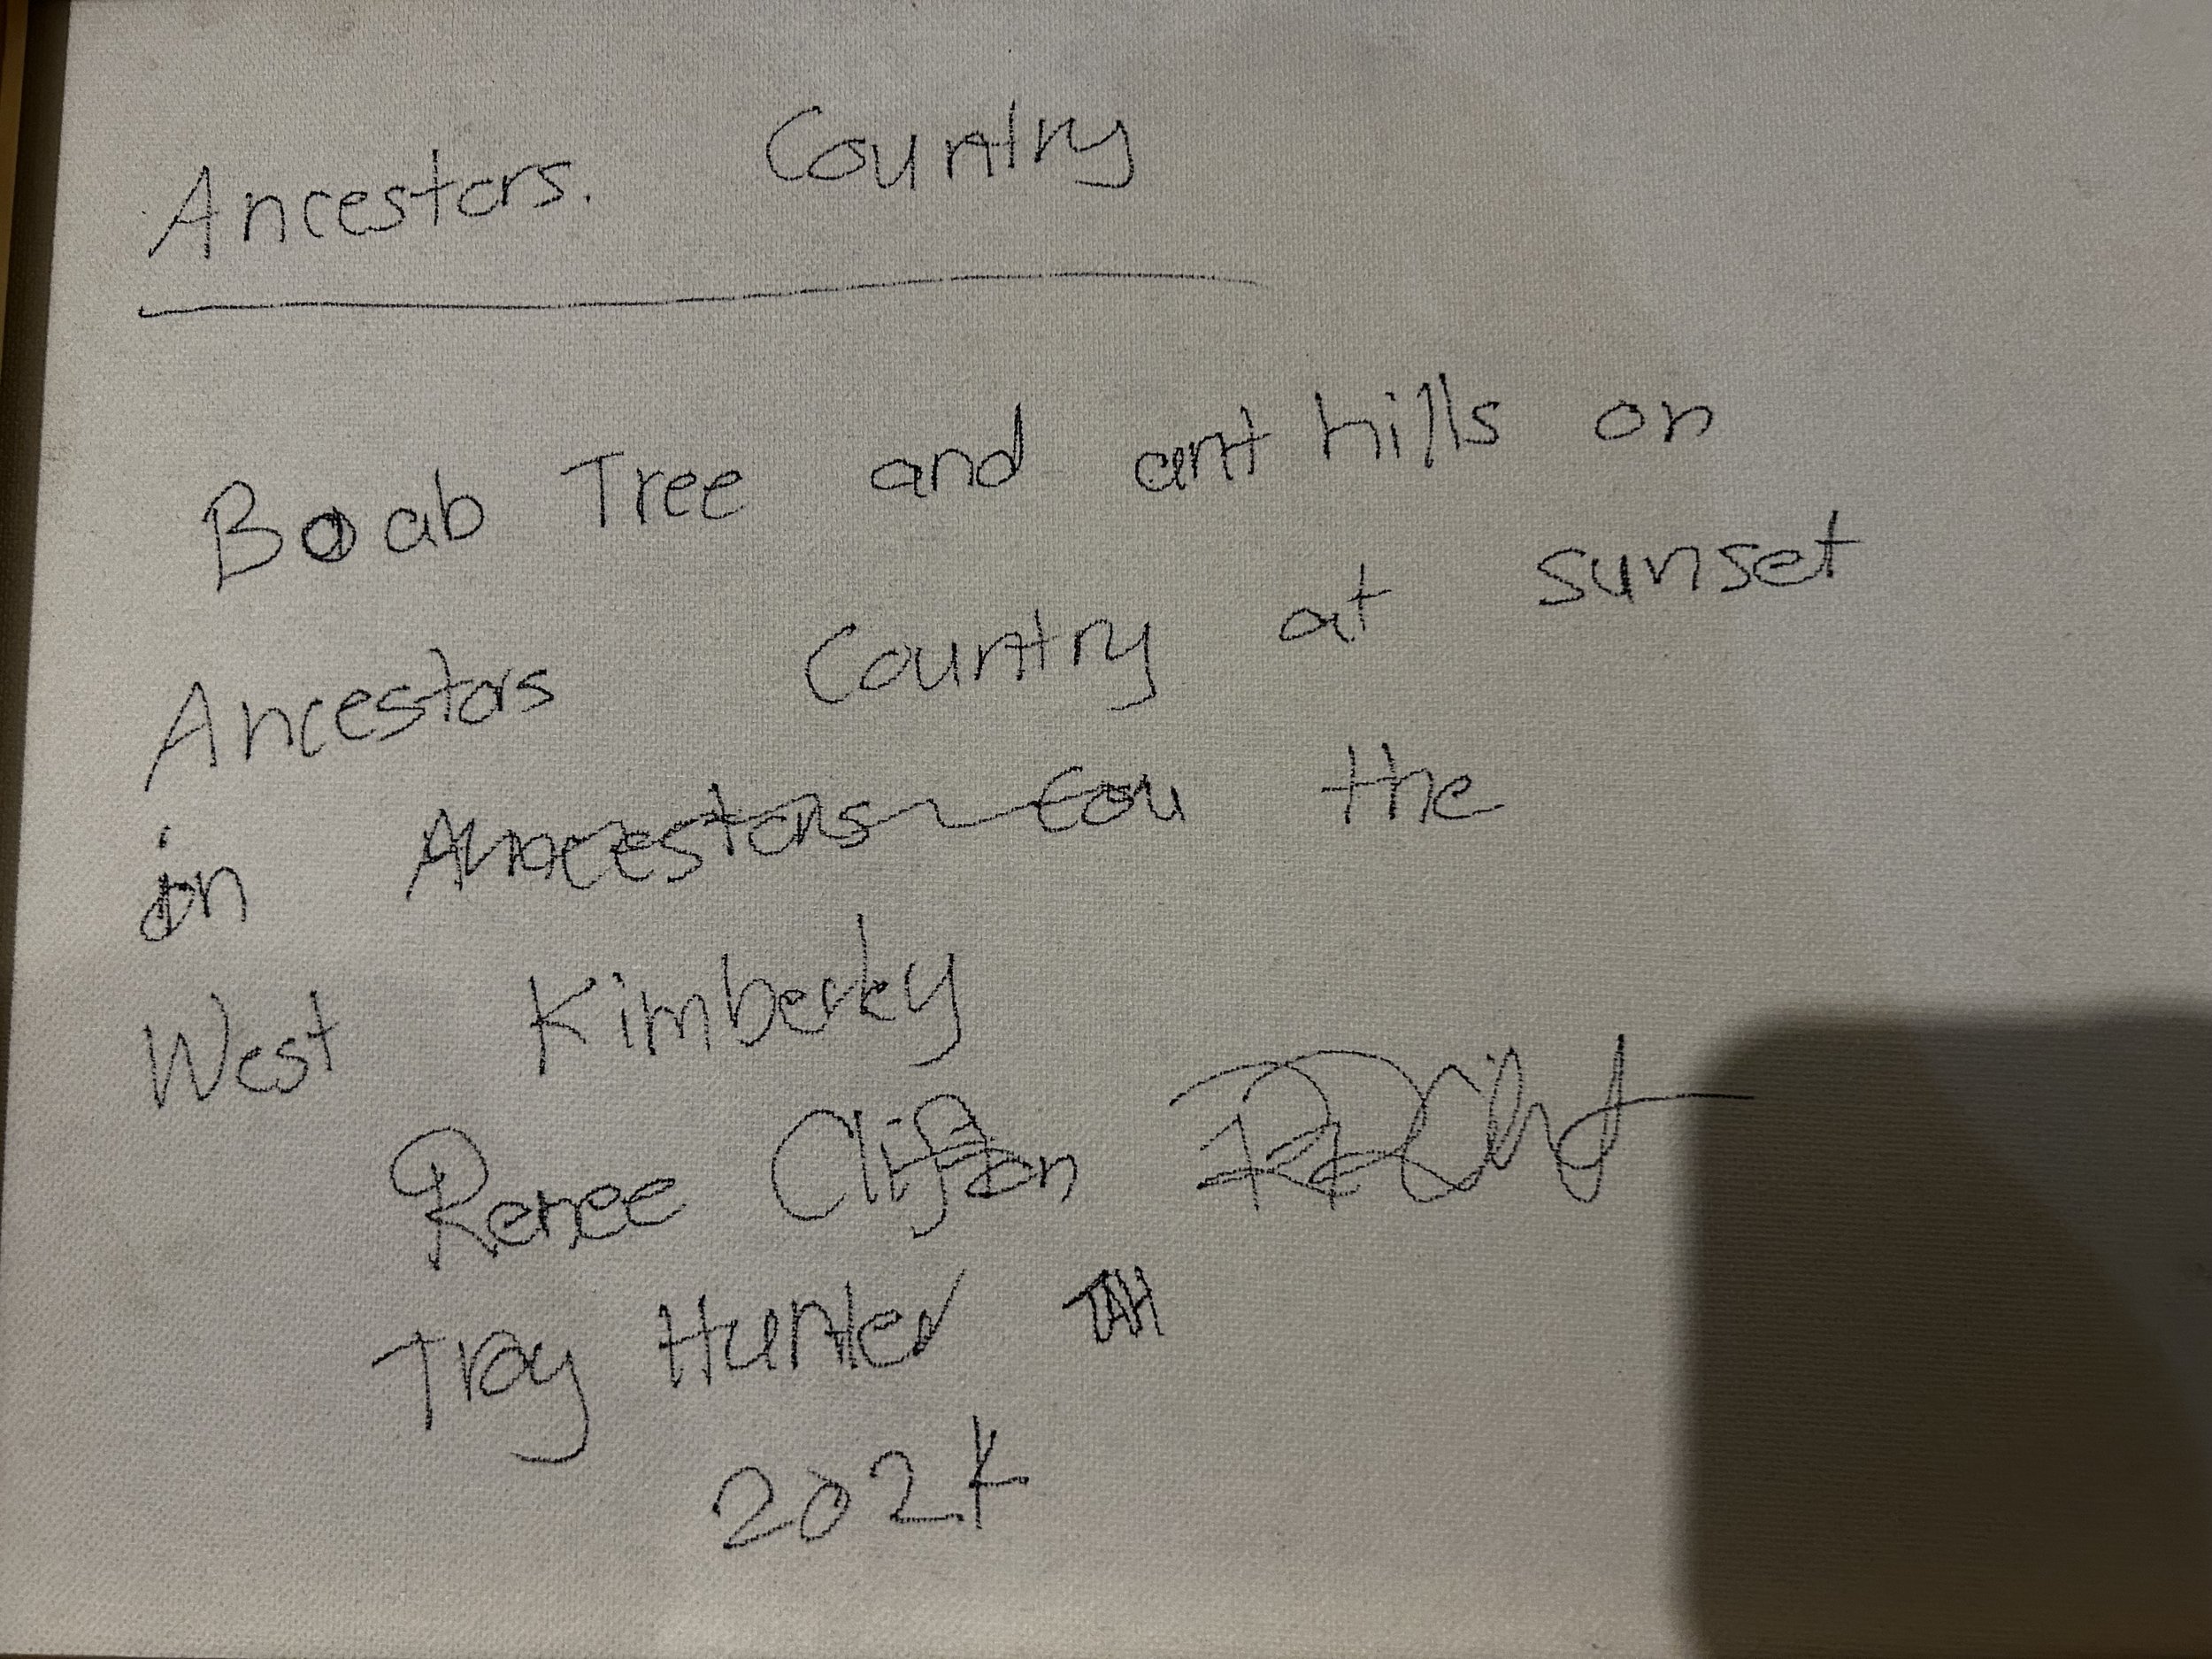 Ancestors. Country
Boab Tree and ant hills on
Ancestors Country at sunset
in Ancestors Cou the
West Kimberley
Renee Clifton
Troy Hunter TAH
2024